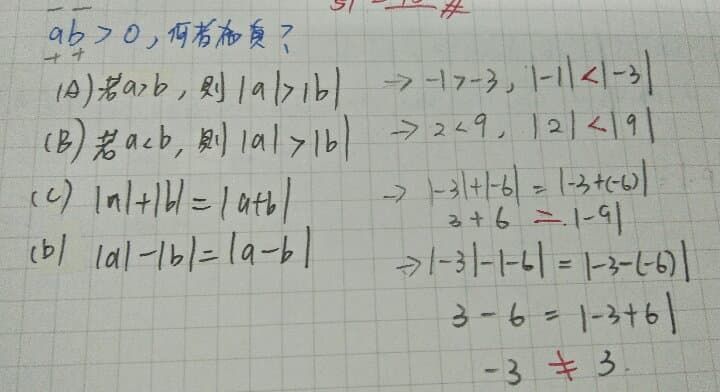 ab > 0, 何者為真?
(A) 若a>b, 則 |a|>|b| → -1>-3, |-1|<|-3|
(B) 若a<b, 則 |a|>|b| → 2<9, |2|<|9|
(C) |a|+|b|=|a+b| → |-3|+|-6| = |-3+(-6)|
3+6 = |-9|
(D) |a|-|b|=|a-b| → |-3|-|-6| = |-3-(-6)|
3-6 = |-3+6|
-3 ≠ 3.